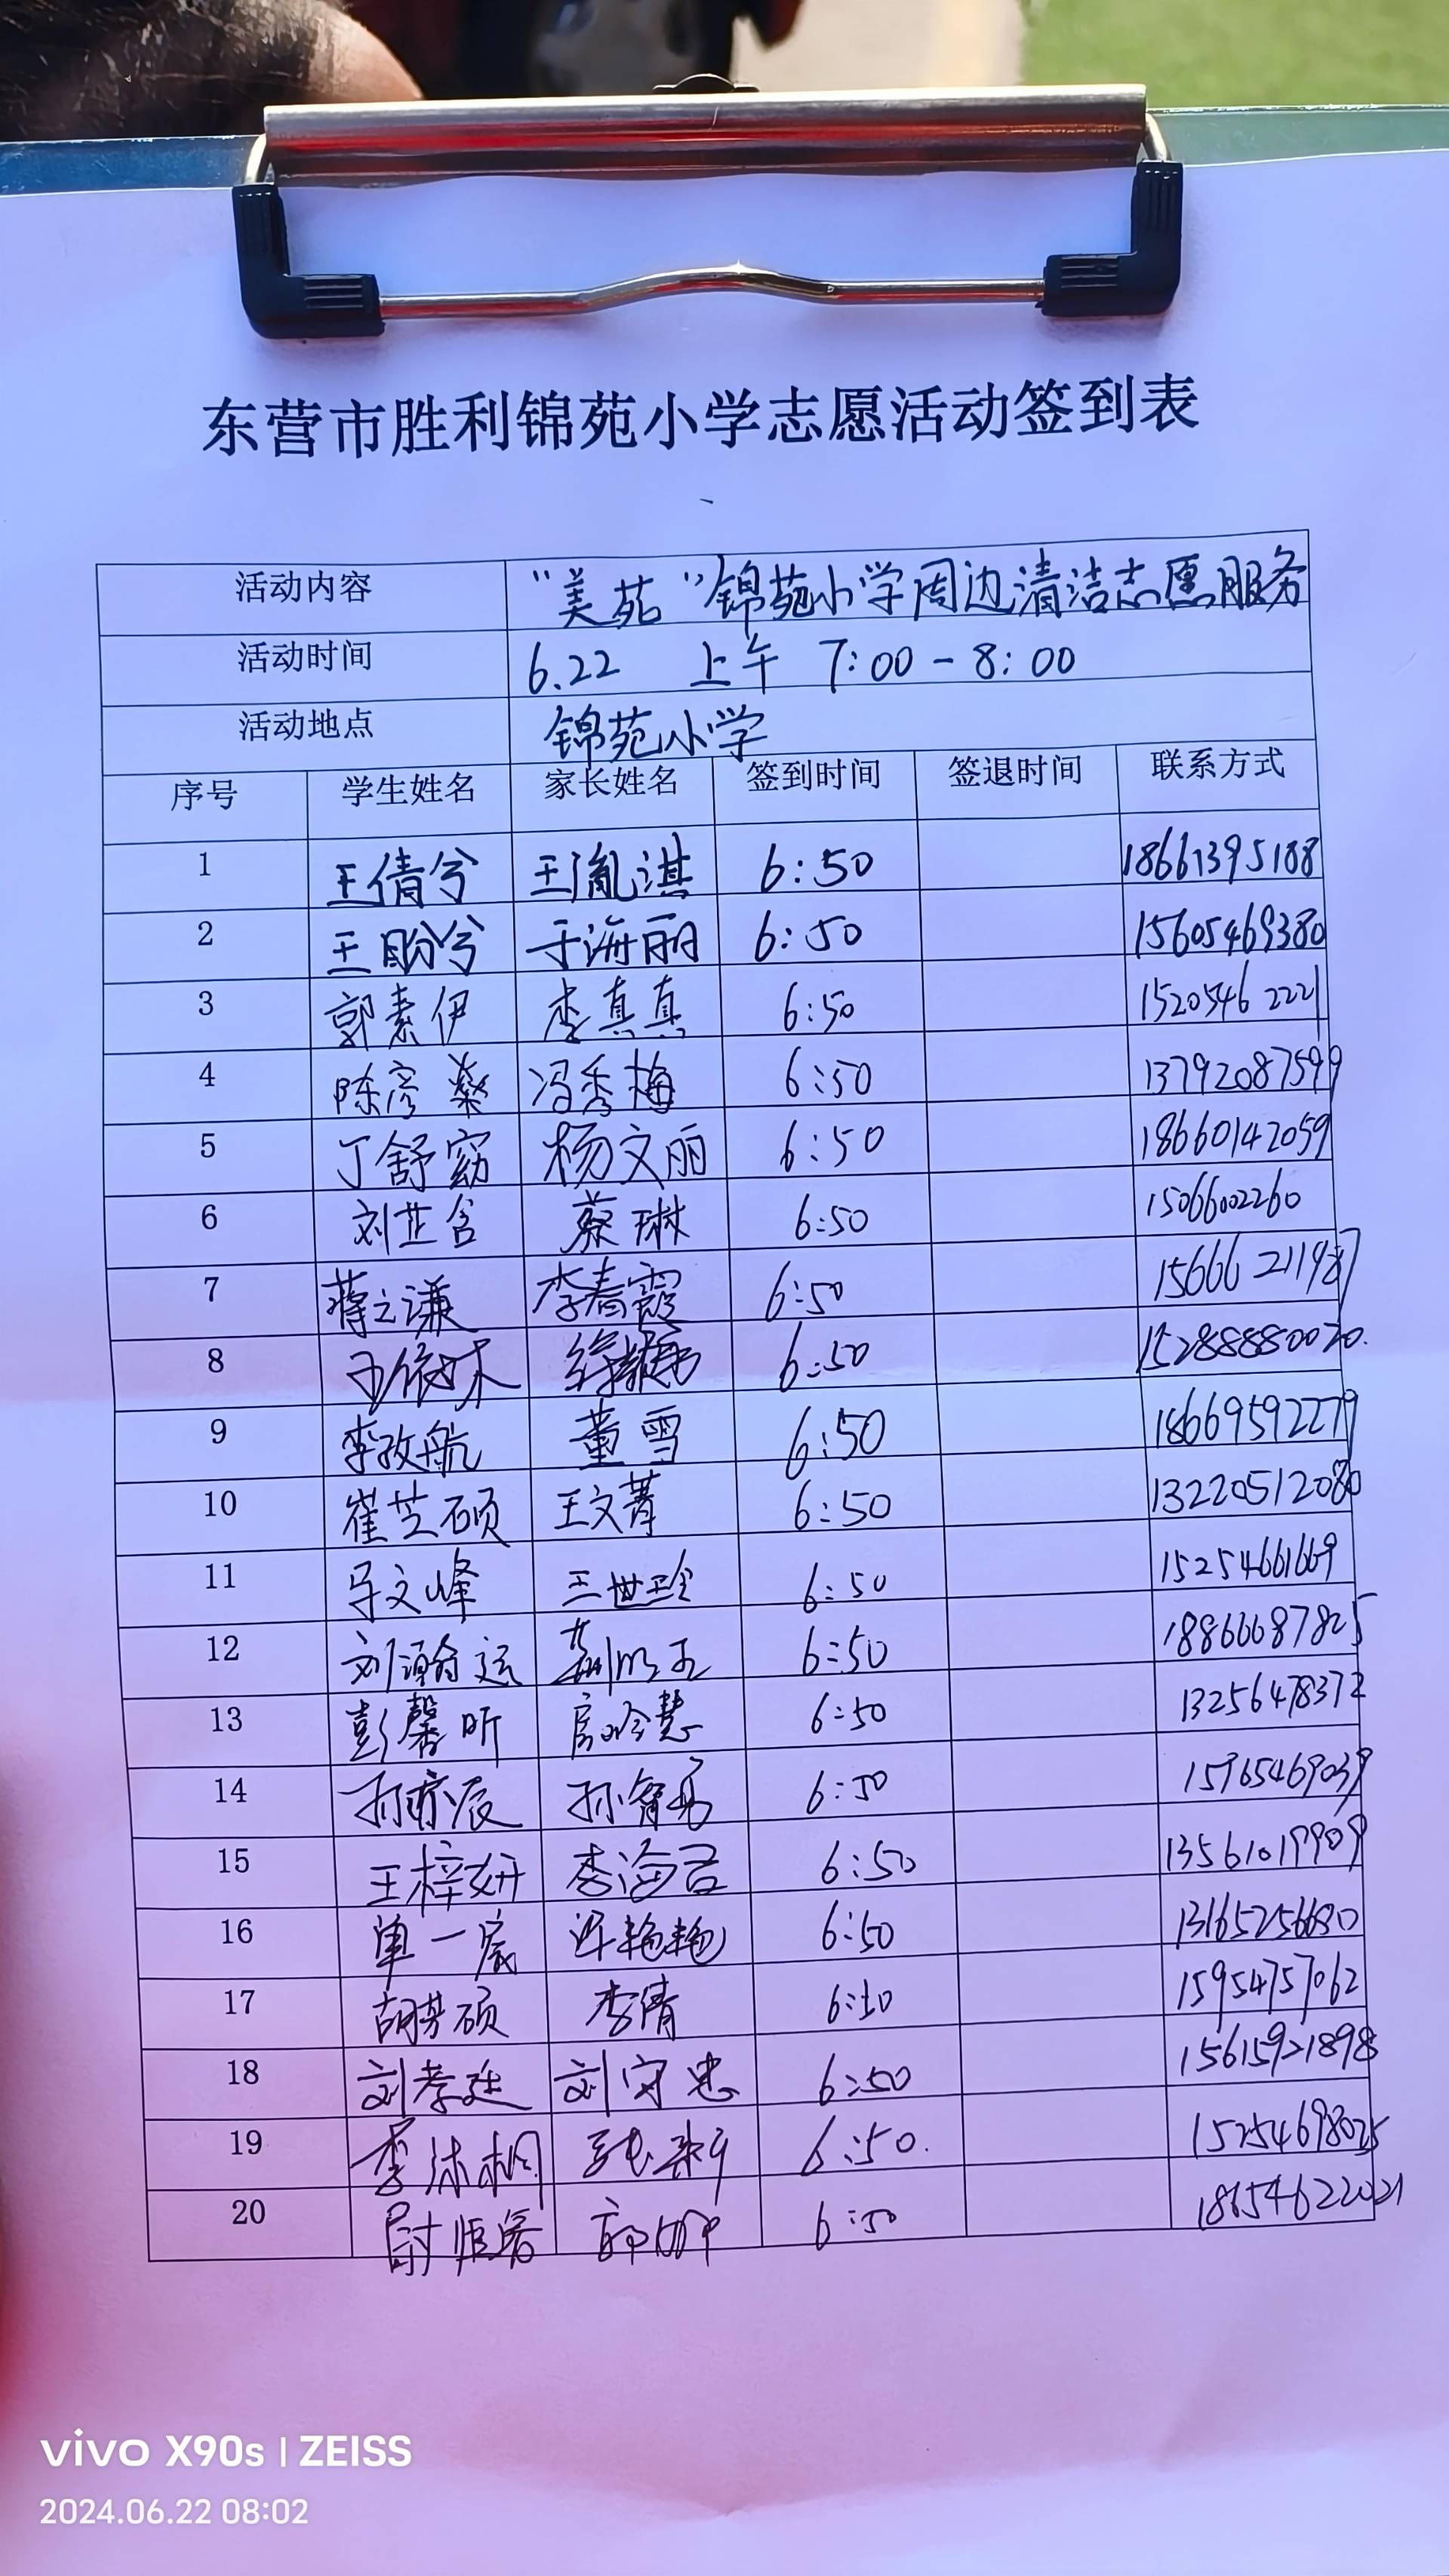 东营市胜利锦苑小学志愿活动签到表
活动内容 “美苑”锦苑小学周边清洁志愿服务
活动时间 6.22 上午 7:00-8:00
活动地点 锦苑小学
序号 学生姓名 家长姓名 签到时间 签退时间 联系方式
1 王倩兮 王胤淇 6:50 18661395188
2 王盼兮 于海丽 6:50 15605469380
3 郭素伊 李真真 6:50 15205462221
4 陈彦燊 冯秀梅 6:50 13792087599
5 丁舒窈 杨文丽 6:50 18660142059
6 刘芷含 蔡琳 6:50 15066002260
7 蒋之谦 李春霞 6:50 15666211987
8 6:50 15288880020.
9 李政航 董雪 6:50 18669592279
10 崔芝硕 王文菁 6:50 13220512080
11 马文峰 王世玲 6:50 15254661669
12 刘瀚远 6:50 18866687825
13 彭馨昕 房吟慧 6:50 13256478372
14 孙睿辰 6:50 15965469039
15 王梓妍 李海君 6:50 13561019909
16 单一宸 许艳艳 6:50 13165256680
17 胡芳硕 李倩 6:50 15954757062
18 刘孝廷 刘守忠 6:50 15615921898
19 李沐桐 6:50. 15254698025
20 6:50 18654622021
vivo X90s | ZEISS
2024.06.22 08:02